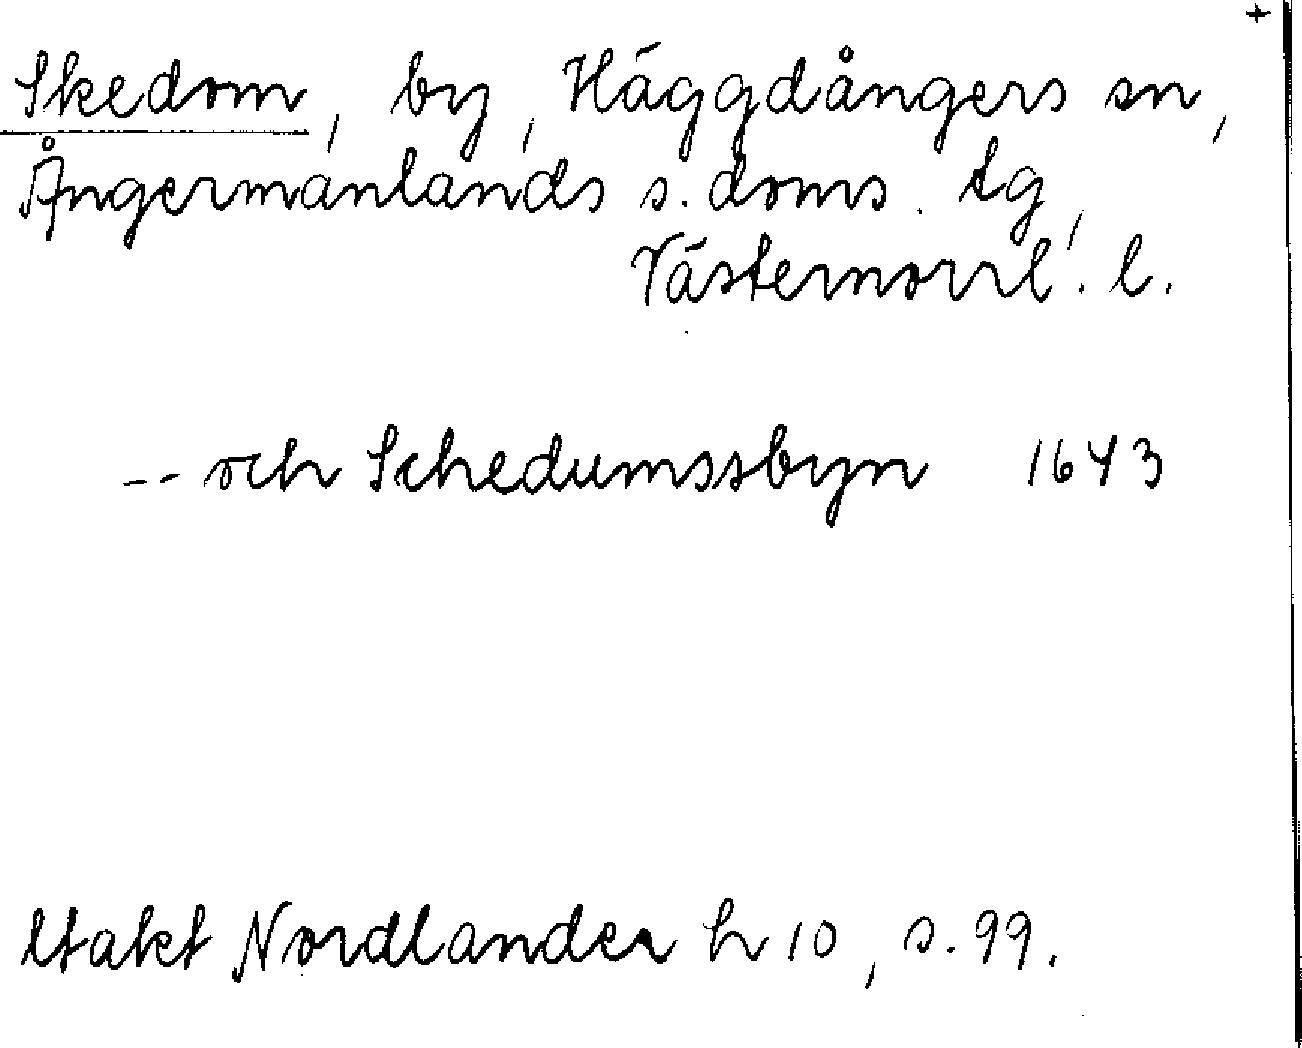 +
Skedom, by, Häggdångers sn,
Ångermanlands s. doms. tg,
Västernorrl. l.
-- och Schedumssbyn 1643
Utakt Nordlander h 10, s. 99.